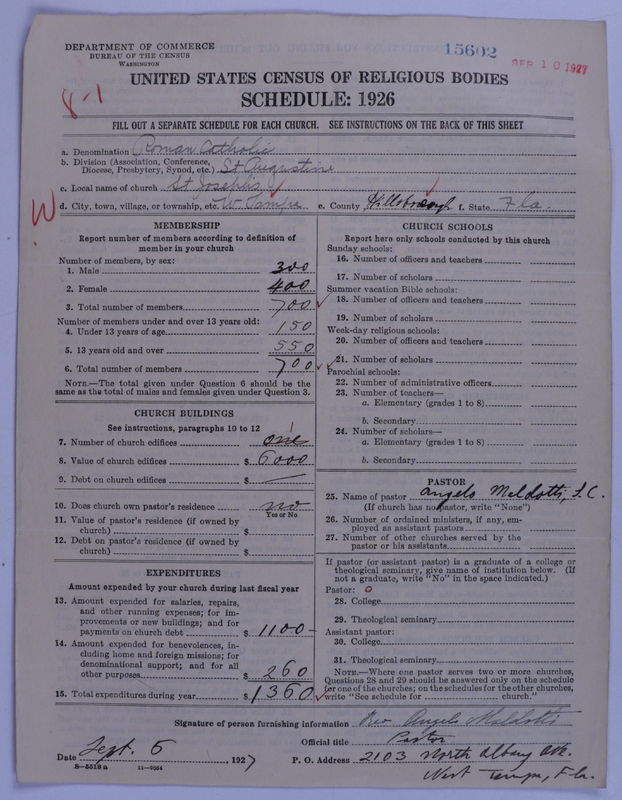 DEPARTMENT OF COMMERCE
BUREAU OF THE CENSUS
WASHINGTON
15602
SEP 10 1927
8-1
UNITED STATES CENSUS OF RELIGIOUS BODIES
SCHEDULE: 1926
FILL OUT A SEPARATE SCHEDULE FOR EACH CHURCH. SEE INSTRUCTIONS ON THE BACK OF THIS SHEET
a. Denomination Roman Catholic
b. Division (Association, Conference, Diocese, Presbytery, Synod, etc.) St Augustine
c. Local name of church St Joseph's
W
d. City, town, village, or township, etc. W. Tampa e. County Hillsborough f. State Fla.
MEMBERSHIP
Report number of members according to definition of member in your church
Number of members, by sex:
1. Male 300
2. Female 400
3. Total number of members 700
Number of members under and over 13 years old:
4. Under 13 years of age 150
5. 13 years old and over 550
6. Total number of members 700
NOTE.—The total given under Question 6 should be the same as the total of males and females given under Question 3.
CHURCH BUILDINGS
See instructions, paragraphs 10 to 12
7. Number of church edifices one 1
8. Value of church edifices $ 6000
9. Debt on church edifices $ —
10. Does church own pastor's residence no
Yes or No
11. Value of pastor's residence (if owned by church) $
12. Debt on pastor's residence (if owned by church) $
EXPENDITURES
Amount expended by your church during last fiscal year
13. Amount expended for salaries, repairs, and other running expenses; for improvements or new buildings; and for payments on church debt $ 1100-
14. Amount expended for benevolences, including home and foreign missions; for denominational support; and for all other purposes $ 260
15. Total expenditures during year $ 1360
CHURCH SCHOOLS
Report here only schools conducted by this church
Sunday schools:
16. Number of officers and teachers
17. Number of scholars
Summer vacation Bible schools:
18. Number of officers and teachers
19. Number of scholars
Week-day religious schools:
20. Number of officers and teachers
21. Number of scholars
Parochial schools:
22. Number of administrative officers
23. Number of teachers—
a. Elementary (grades 1 to 8)
b. Secondary
24. Number of scholars—
a. Elementary (grades 1 to 8)
b. Secondary
PASTOR
25. Name of pastor Angelo Maldotti, S.C.
(If church has no pastor, write "None")
26. Number of ordained ministers, if any, employed as assistant pastors
27. Number of other churches served by the pastor or his assistants
If pastor (or assistant pastor) is a graduate of a college or theological seminary, give name of institution below. (If not a graduate, write "No" in the space indicated.)
Pastor: 0
28. College
29. Theological seminary
Assistant pastor:
30. College
31. Theological seminary
NOTE.—Where one pastor serves two or more churches, Questions 28 and 29 should be answered only on the schedule for one of the churches; on the schedules for the other churches, write "See schedule for church."
Signature of person furnishing information Rev Angelo Maldotti
Official title Pastor
Date Sept. 6, 1927 P. O. Address 2103 North Albany Ave.
8-5518a 11-9534 West Tampa, Fla.